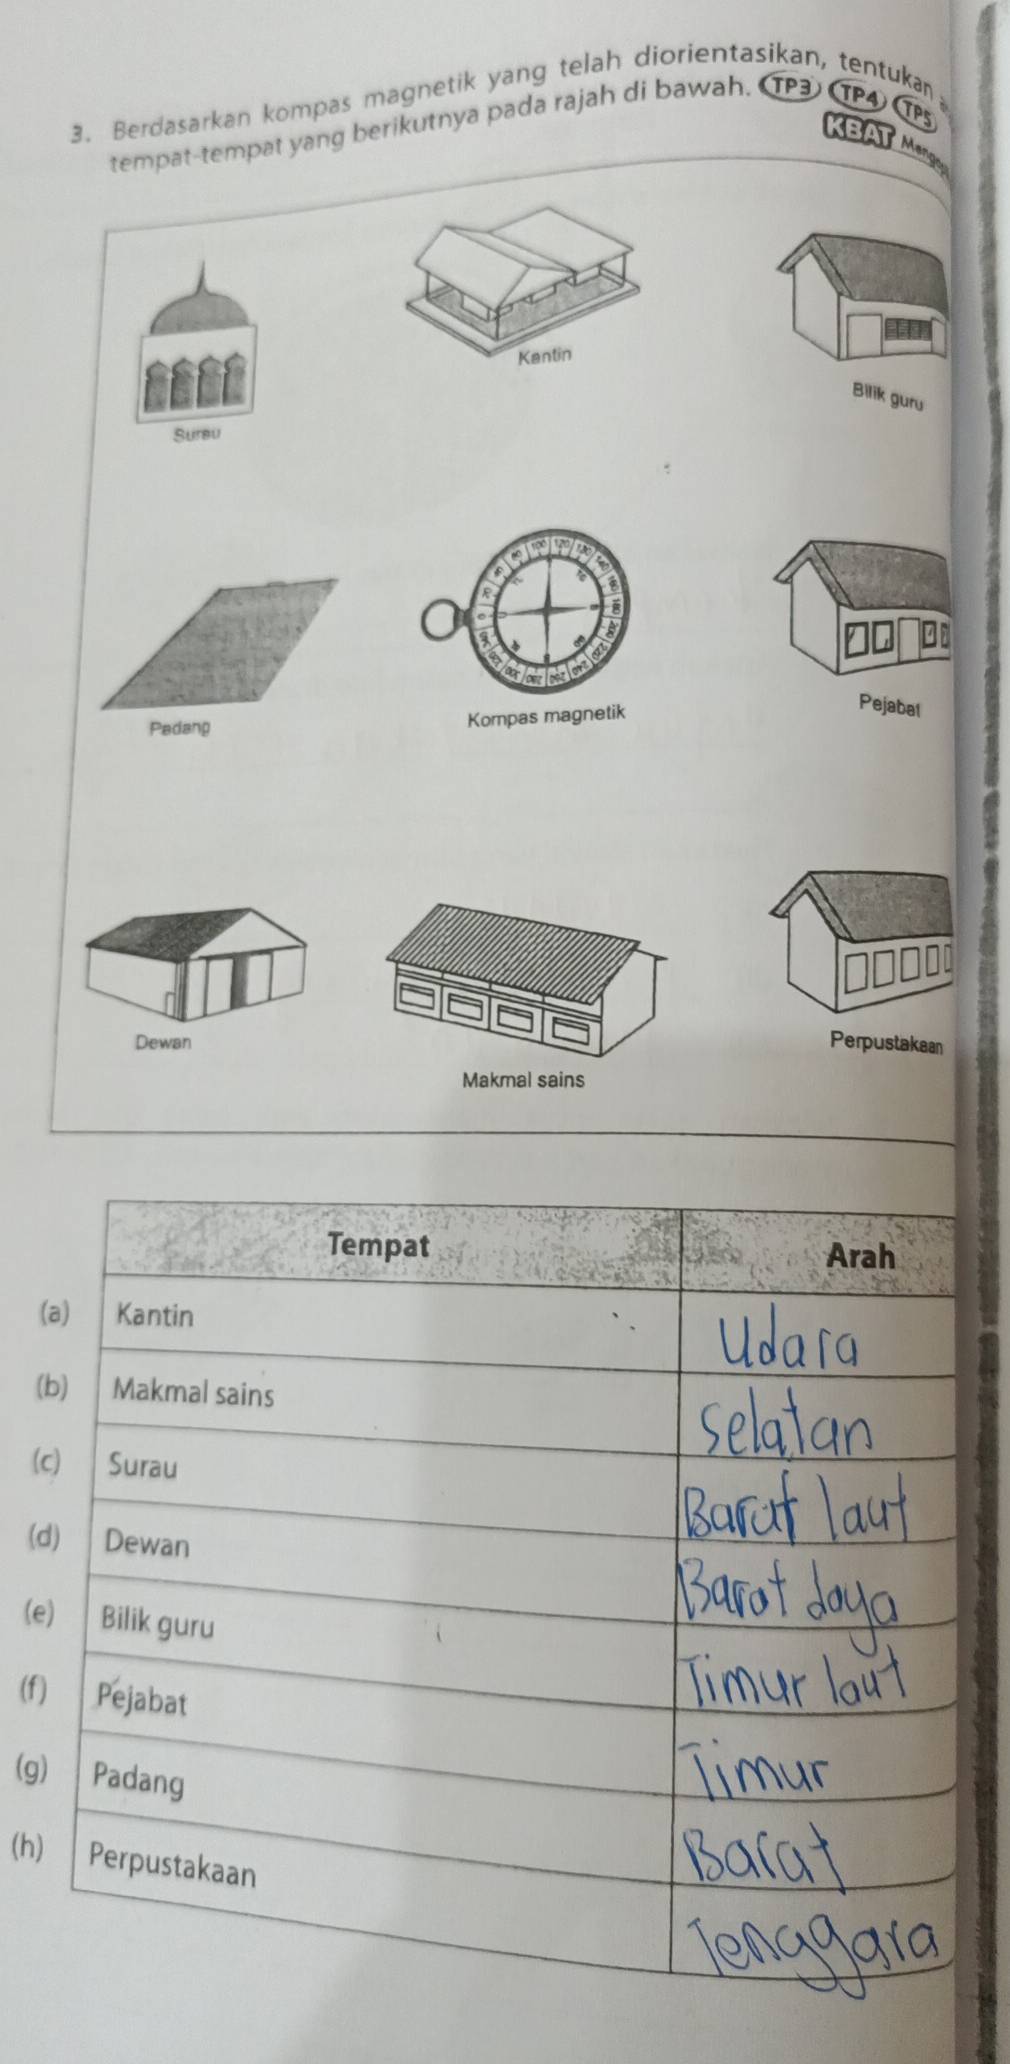 3. Berdasarkan kompas magnetik yang telah diorientasikan, tentukan
tempat-tempat yang berikutnya pada rajah di bawah. TP3 TP4 TP5
KBAT
Surau
Kantin
Bilik guru
Padang
Kompas magnetik
Pejabat
Dewan
Makmal sains
Perpustakaan
Tempat Arah
(a) Kantin Udara
(b) Makmal sains Selatan
(c) Surau Barat laut
(d) Dewan Barat daya
(e) Bilik guru Timur laut
(f) Pejabat Timur
(g) Padang Barat
(h) Perpustakaan Tenggara